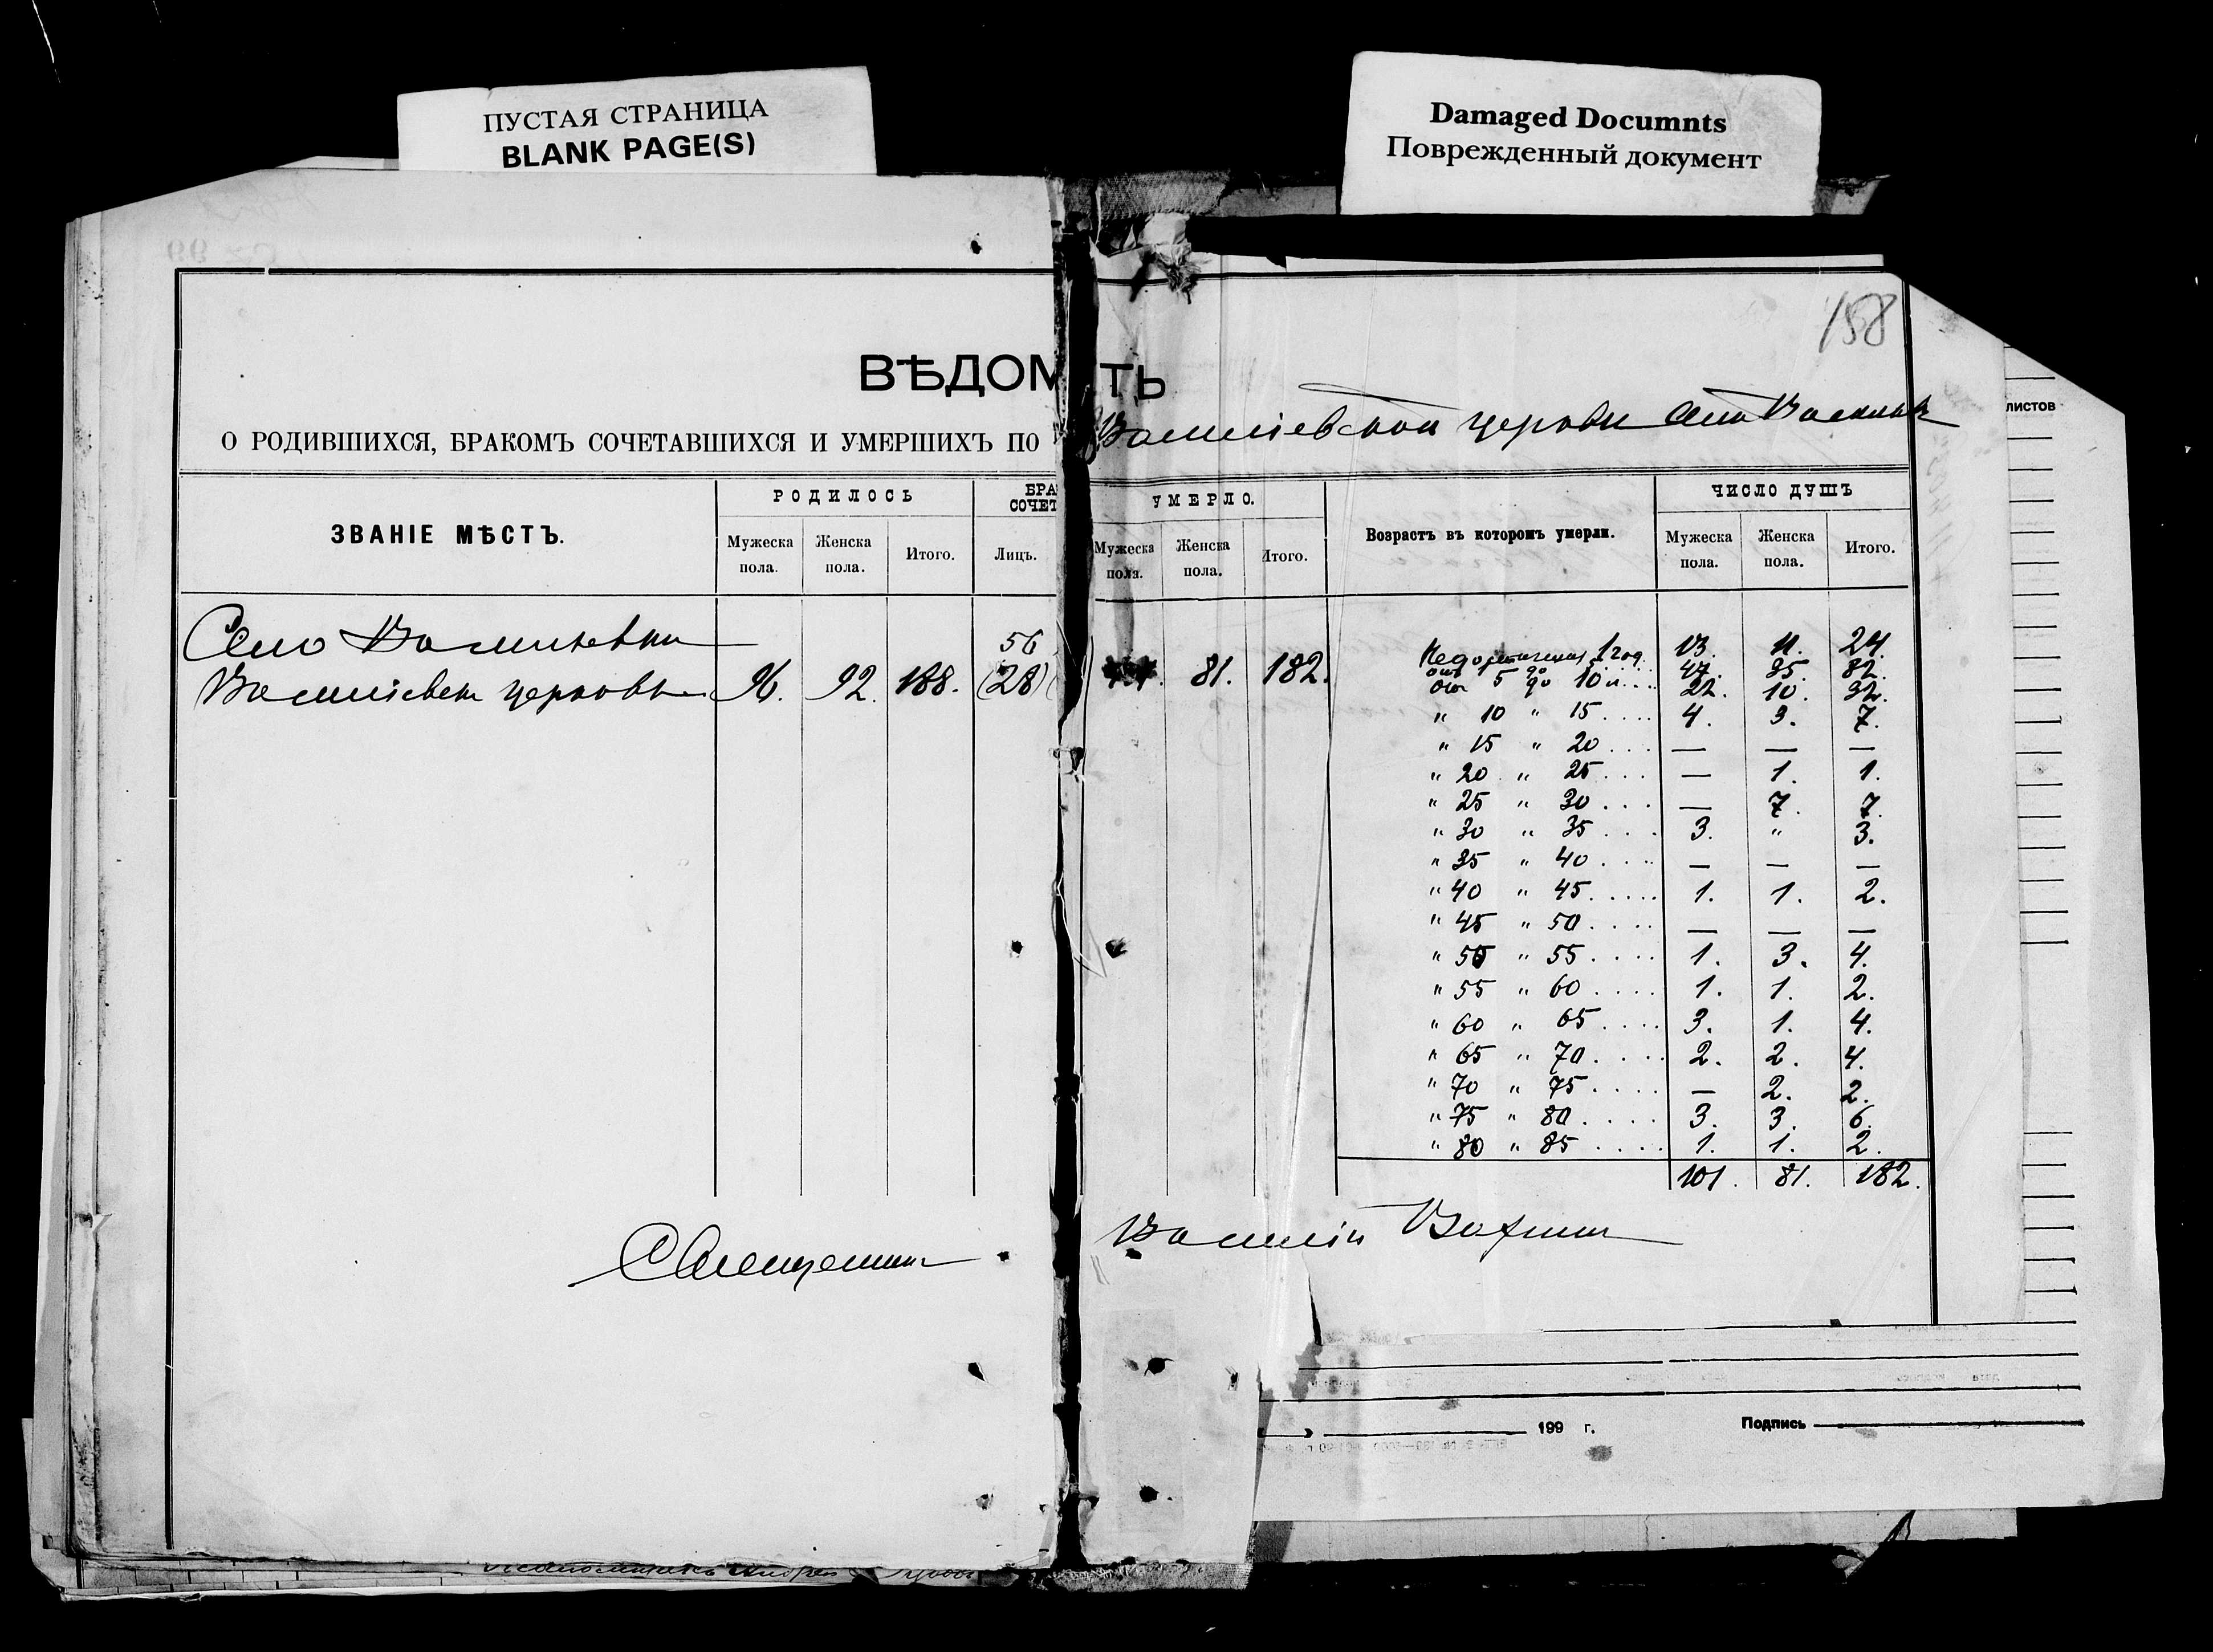 ПУСТАЯ СТРАНИЦА
BLANK PAGE(S)
Damaged Documnts
Поврежденный документ
158
ВѢДОМ ТЬ
О РОДИВШИХСЯ, БРАКОМЪ СОЧЕТАВШИХСЯ И УМЕРШИХЪ ПО Василіевской церкви села
листов
ЗВАНІЕ МѢСТЪ.
РОДИЛОСЬ
Мужеска пола.
Женска пола.
Итого.
БРА
СОЧЕТ
Лицъ.
УМЕРЛО.
Мужеска пола.
Женска пола.
Итого.
Возрастъ въ которомъ умерли.
ЧИСЛО ДУШЪ
Мужеска пола.
Женска пола.
Итого.
Село Васильевка
56
Василіевск церковь 96. 92. 188. (28) 81. 182.
1 год 13. 11. 24.
47. 35. 82.
От 5 до 10 л. 22. 10. 32.
" 10 " 15 .... 4. 3. 7.
" 15 " 20 ... — — —
" 20 " 25 ... — 1. 1.
" 25 " 30 ... — 7. 7.
" 30 " 35 ... 3. " 3.
" 35 " 40 .... — — —
" 40 " 45 ..... 1. 1. 2.
" 45 " 50 .... — — —
" 50 " 55 .... 1. 3. 4.
" 55 " 60 .... 1. 1. 2.
" 60 " 65 .... 3. 1. 4.
" 65 " 70 .... 2. 2. 4.
" 70 " 75 .... — 2. 2.
" 75 " 80 .... 3. 3. 6.
" 80 " 85 .... 1. 1. 2.
101. 81. 182.
Священник Василій
199 г. Подпись